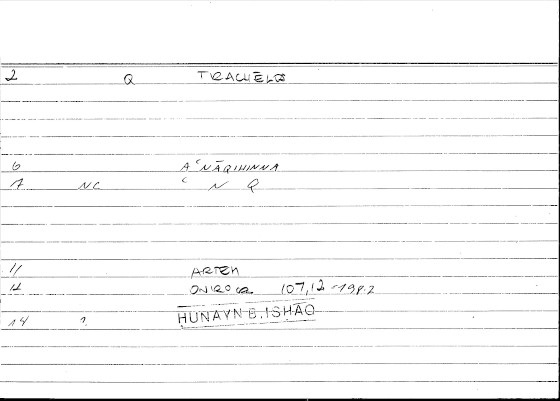 2 Q TRACHĒLOS
6 AʿNĀQIHINNA
7 NC ʿ N Q
11 ARTEM
12 ONIROCR 107,12 - 198.2
14 1. HUNAYN B. ISHAQ